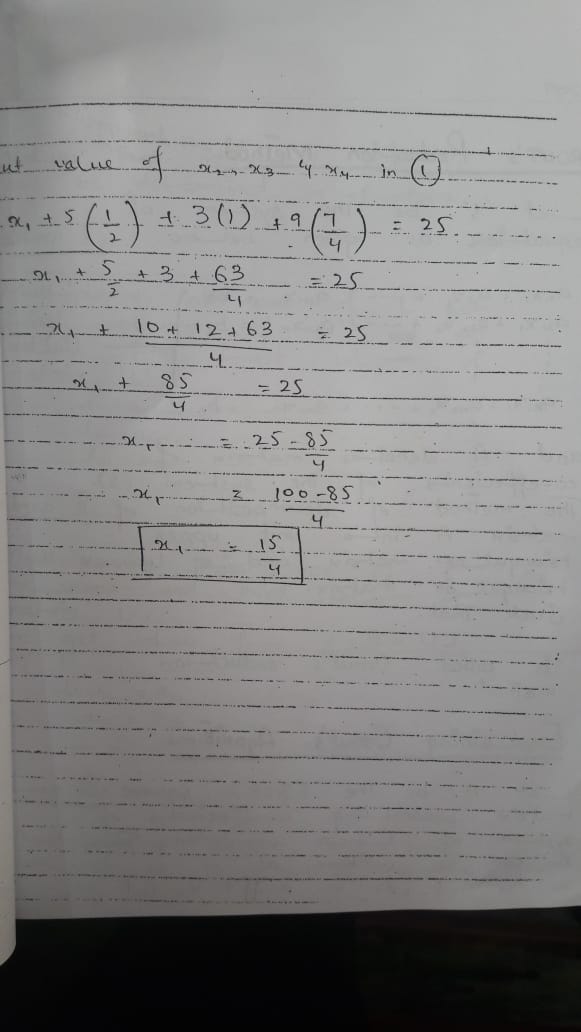 ut value of x₂, x₃ & x₄ in ①
x₁ + 5 (1/2) + 3(1) + 9 (7/4) = 25.
x₁ + 5/2 + 3 + 63/4 = 25
x₁ + (10 + 12 + 63)/4 = 25
x₁ + 85/4 = 25
x₁ = 25 - 85/4
x₁ = (100 - 85)/4
x₁ = 15/4